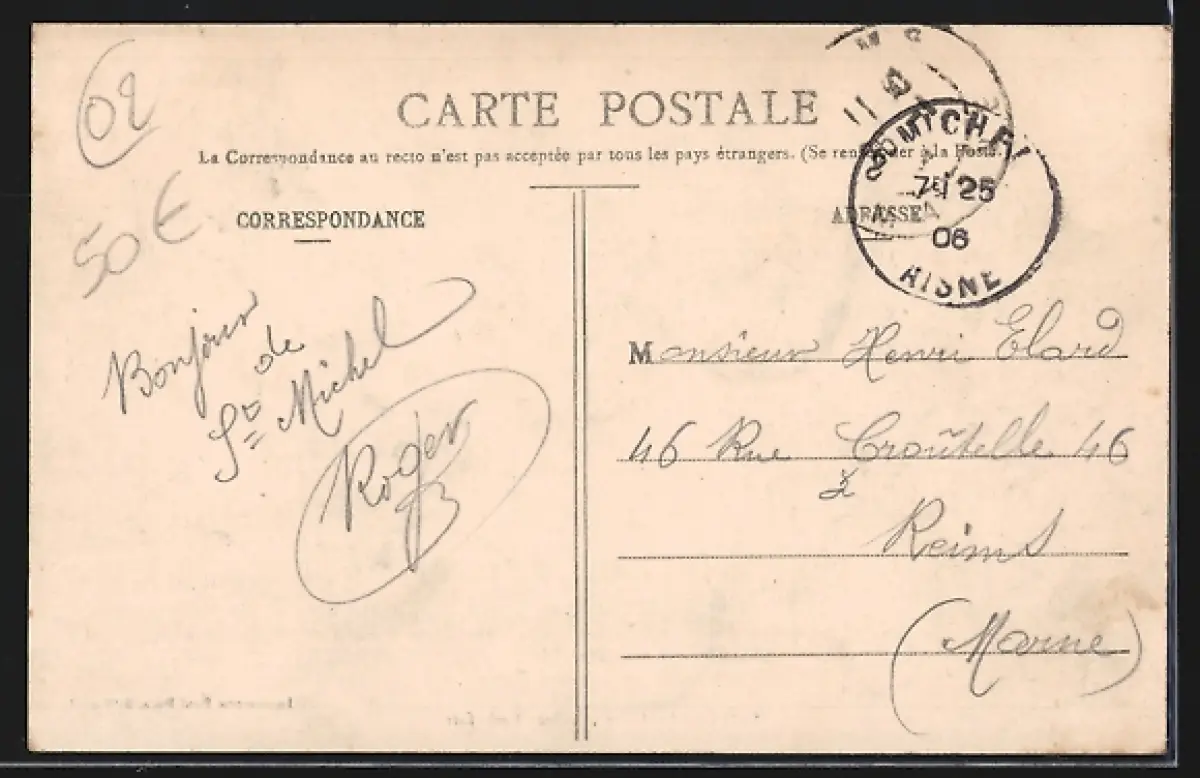 02
50 €
CARTE POSTALE
La Correspondance au recto n'est pas acceptée par tous les pays étrangers. (Se renseigner à la Poste.)
CORRESPONDANCE
ADRESSE
MICHEL
25
06
AISNE
Bonjour
de
St Michel
Roger
Monsieur Henri Elard
46 Rue Croûtelle 46
à
Reims
(Marne)